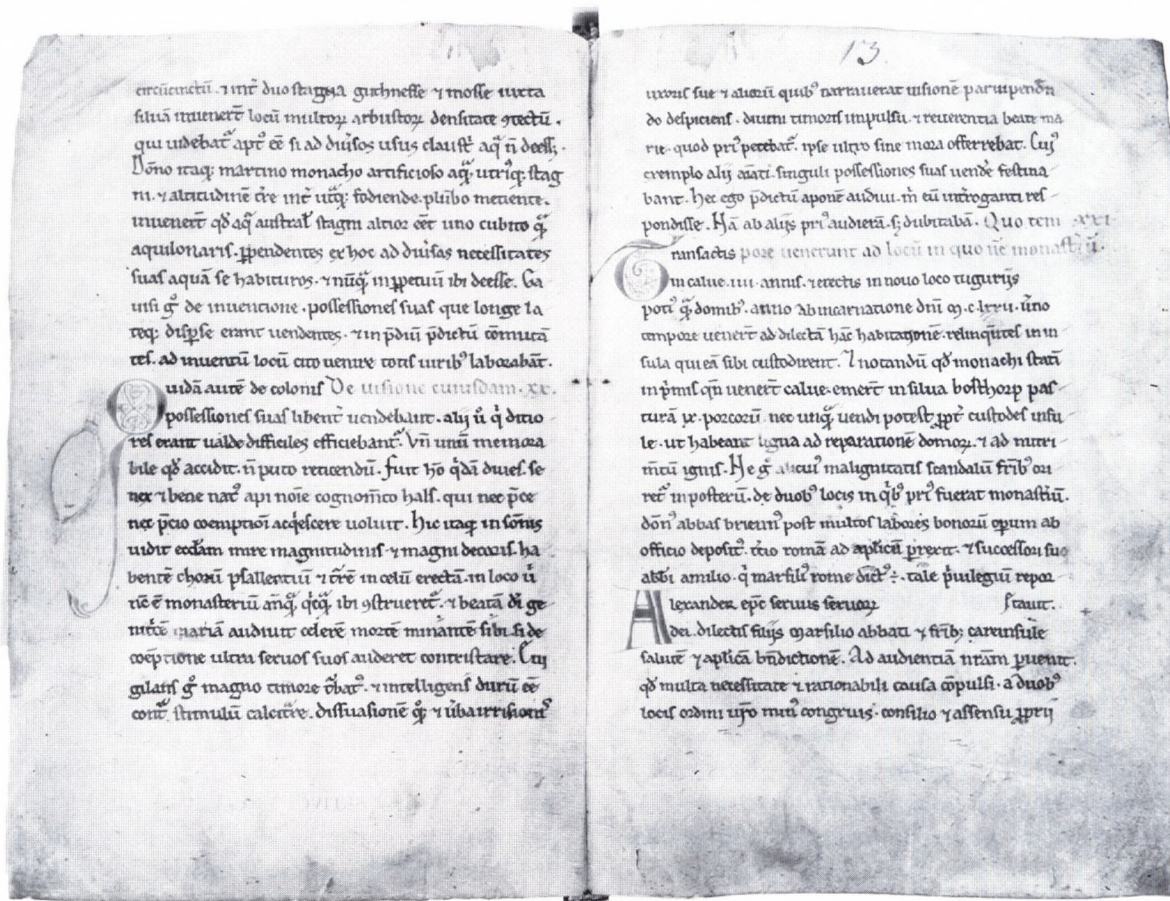 circūcinctū. ⁊ int̄ duo stagna guthnesse ⁊ mosse iuxta
siluā inuener̄t locū multoꝝ arbustoꝝ densitate ꝯtectū.
qui uidebat᷑ apt᷒ eē si ad diuisos usus claustr̄ aq̄ ñ deess&.
Dōno itaq; martino monacho artificioso aq̄ utriq; stag
ni. ⁊ altitudinē tr̄e int̄ utq; fodiende. plūbo metiente.
inuener̄t qd̄ aq̄ austral̄ stagni altior eēt uno cubito q̄
aquilonaris. ꝑpendentes ex hoc ad diūsas necessitates
suas aquā se habituros. ⁊ nūq̄ inꝑpetuū ibi deesse. Ga
uisi gͦ de inuentione. possessiones suas que longe la
teq; disꝑse erant uendentes. ⁊ in p̄diū p̄dictū cōmutā
tes. ad inuentū locū cito uenire totis uirib᷒ laborabāt.
Quidā autē de colonis De uisione cuiusdam. xx.
possessiones suas libent̄ uendebant. alij ū q̄ ditio
res erant ualde difficiles efficiebant᷑. Vn̄ unū memora
bile qd̄ accidit. ñ puto reticendū. fuit hō q̄dā diues. se
nex ⁊ bene nat᷒ api noīe cognom̄to hals. qui nec p̄ce
nec p̄cio coemptiōi acq̄escere uoluit. Hic itaq; in sōnis
uidit eccl̄am mire magnitudinis ⁊ magni decoris ha
bentē chorū psallentiū ⁊ t̄rē in celū erectā. in loco ū
nc̄ ē monasteriū an̄q̄ q̄cq̄ ibi ꝯstrueret᷑. ⁊ beatā dī ge
nitcē mariā audiuit celerē mortē minantē sibi. si de
coēptione ultra seruos suos auderet contristare. Eui
gilans gͦ magno timore t̄bat᷒. ⁊ intelligens durū eē
cont̄ stimulū calcit̄re. dissuasionē q̄ꝫ ⁊ ūba irrisionū
13
uxoris sue ⁊ alioꝝ quib᷒ narrauerat uisionē paruipenden
do despiciens. diuini timoris impulsu. ⁊ reuerentia beate ma
rie. quod pri᷒ petebat᷑. ipse ultro sine mora offerrebat. Cui᷒
exemplo alij aīati. singuli possessiones suas uendē festina
bant. Hec ego p̄dictū aponē audiui. m̄ eū int̄roganti res
pondisse. Hā ab alijs pri᷒ audierā. s; dubitabā. Quo tem xxi
Transactis pore uenerunt ad locū in quo nc̄ monastīū.
in calue. iiii. annis. ⁊ erectis in nouo loco tugurijs
poti᷒ q̄ domib᷒. anno ab incarnatione dn̄i m. c. lxxii. ūno
tempore uener̄t ad dilectā hāc habitationē. relinquētes in in
sula qui eā sibi custodirent. Inotandū qd̄ monachi stati
in p̄mis qn̄ uener̄t calue. emer̄t in silua bosthorp pas
turā ix. porcorū. nec unq̄ uendi potest ꝓpt̄ custodes insu
le. ut habeant ligna ad reparationē domoꝝ. ⁊ ad nutri
m̄tū ignis. He gͦ alicui᷒ malignitatis scandalū fr̄ib᷒ ori
ret᷑ inposterū. de duob᷒ locis in q̄b᷒ pri᷒ fuerat monast̄iū.
dōn᷒ abbas brienn᷒ post multos labores bonorū opum ab
officio deposit᷒. t̄cio romā ad aplicū ꝑrexit. ⁊ successori suo
abbi amilio. q̄ marsili᷒ rome dict᷒ ÷. tale p̄uilegiū repor
Alexander ep̄c seruus seruoꝝ stauit.
dei. dilectis filijs marsilio abbati ⁊ fr̄ib; careinsule
salutē ⁊ aplicā bn̄dictionē. Ad audientiā nr̄am ꝑuenit.
qd̄ multa necessitate ⁊ rationabili causa cōpulsi. a duob᷒
locis ordini ur̄o min᷒ congruis. consilio ⁊ assensu ꝓprij